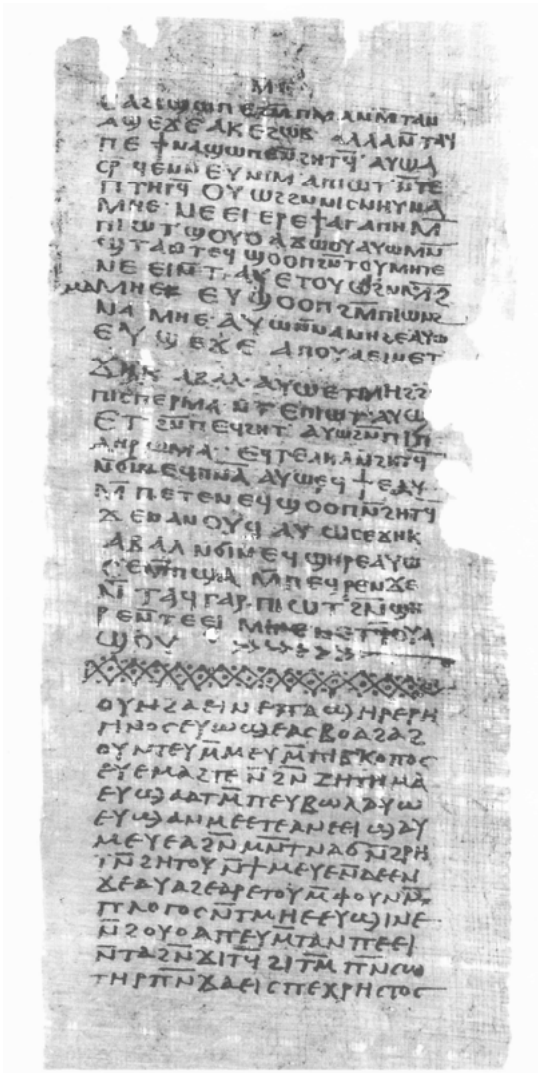 ⲙ̅ⲅ̅
ⲉⲁϩⲓϣⲱⲡⲉ ϩⲙ̅ ⲡⲙⲁ ⲛⲙ̅ⲧⲁⲛ
ⲁϣⲉϫⲉ ⲁⲕⲉϩⲱⲃ ⲁⲗⲗⲁ ⲛ̅ⲧⲁϥ
ⲡⲉϯⲛⲁϣⲱⲡⲉ ⲛ̅ϩⲏⲧϥ̅ ⲁⲩⲱ ⲁ
ⲥⲣϥⲉ ⲛⲛⲉⲩ ⲛⲓⲙ ⲁⲡⲓⲱⲧ ⲛ̅ⲧⲉ
ⲡⲧⲏⲣϥ̅ ⲟⲩⲱϩ ⲛ̅ⲛⲓⲥⲛⲏⲩ ⲛⲁ
ⲙⲏⲉ ⲛⲉⲉⲓ ⲉⲣⲉϯⲁⲅⲁⲡⲏ ⲙ̅
ⲡⲓⲱⲧ ϣⲟⲩⲟ ⲁϫⲱⲟⲩ ⲁⲩⲱ ⲙⲛ̅
ϣⲧⲁ ⲛⲧⲉϥ ϣⲟⲟⲡ ϩⲛ̅ ⲧⲟⲩⲙⲏⲧⲉ
ⲛⲉⲉⲓ ⲛ̅ⲧⲁⲩ ⲉⲧⲟⲩⲱⲛϩ
ⲙⲁⲙⲏⲉ ⲉⲩϣⲟⲟⲡ ϩⲙ̅ ⲡⲓⲱⲛϩ
ⲛⲁⲙⲏⲉ ⲁⲩⲱ ⲛ̅ⲛⲁⲛⲏϩⲉ ⲁⲩⲱ
ⲉⲩϣⲉϫⲉ ⲁⲡⲟⲩⲁⲉⲓⲛ ⲉⲧ
ϫⲏⲕ ⲁⲃⲁⲗ ⲁⲩⲱ ⲉⲧⲙⲏϩ ϩⲛ̅
ⲡⲓⲥⲡⲉⲣⲙⲁ ⲛ̅ⲧⲉ ⲡⲓⲱⲧ ⲁⲩⲱ
ⲉⲧϩⲛ̅ ⲡⲉϥϩⲏⲧ ⲁⲩⲱ ϩⲛ̅ ⲡⲓⲡ
ⲗⲏⲣⲱⲙⲁ ⲉϥⲧⲉⲗⲏⲗ ⲛ̅ϩⲏⲧϥ̅
ⲛ̅ϭⲓ ⲡⲉϥⲡⲛ̅ⲁ̅ ⲁⲩⲱ ⲉϥϯ ⲉⲁⲩ
ⲙ̅ⲡⲉⲧⲉⲛⲉϥϣⲟⲟⲡ ⲛ̅ϩⲏⲧϥ
ϫⲉ ⲛⲁⲛⲟⲩϥ ⲁⲩⲱ ⲥⲉϫⲏⲕ
ⲁⲃⲁⲗ ⲛϭⲓ ⲛⲉϥϣⲏⲣⲉ ⲁⲩⲱ
ⲥⲉⲙ̅ⲡϣⲁ ⲙ̅ⲡⲉϥⲣⲉⲛ ϫⲉ
ⲛ̅ⲧⲁϥ ⲅⲁⲣ ⲡⲓⲱⲧ ϩⲛ̅ϣⲏ
ⲣⲉ ⲛ̅ⲧⲉⲉⲓⲙⲓⲛⲉ ⲛⲉⲧϥⲟⲩⲁ
ϣⲟⲩ
ⲟⲩⲛ ϩⲁⲉⲓⲛⲉ ⲡⲁϣⲏⲣⲉ ⲣⲏ
ⲅⲓⲛⲟⲥ ⲉⲩⲱϣ ⲉⲥⲃⲟ ⲁϩⲁϩ
ⲟⲩⲛⲧⲉⲩ ⲙ̅ⲙⲉⲩ ⲙ̅ⲡⲓⲥⲕⲟⲡⲟⲥ
ⲉⲩⲉⲙⲁϩⲧⲉ ⲛ̅ϩⲛ̅ⲍⲏⲧⲏⲙⲁ
ⲉⲩϣⲁⲁⲧ ⲙ̅ⲡⲉⲩⲃⲱⲗ ⲁⲩⲱ
ⲉⲩϣⲁⲛⲙⲉⲉⲧⲉ ⲁⲛⲉⲉⲓ ϣⲁⲩ
ⲙⲉⲩⲉ ⲁϩⲛ̅ⲙⲛ̅ⲧⲛⲁϭ ⲛ̅ϩⲣⲏ
ⲓ̈ ⲛ̅ϩⲏⲧⲟⲩ ⲛ̅ϯⲙⲉⲩⲉ ⲛ̅ⲇⲉ ⲉⲛ
ϫⲉ ⲁⲩⲁϩⲉ ⲁⲣⲉⲧⲟⲩ ⲙ̅ⲫⲟⲩⲛ ⲙ̅
ⲡⲗⲟⲅⲟⲥ ⲛ̅ⲧⲙⲏⲉ ⲉⲩϣⲓⲛⲉ
ⲛ̅ϩⲟⲩⲟ ⲁⲡⲉⲩⲙ̅ⲧⲁⲛ ⲡⲉⲉⲓ
ⲛ̅ⲧⲁϩⲛ̅ϫⲓⲧϥ̅ ϩⲓⲧⲙ̅ ⲡⲛ̅ⲥⲱ
ⲧⲏⲣ ⲡⲛ̅ϫⲁⲉⲓⲥ ⲡⲉⲭⲣⲏⲥⲧⲟⲥ